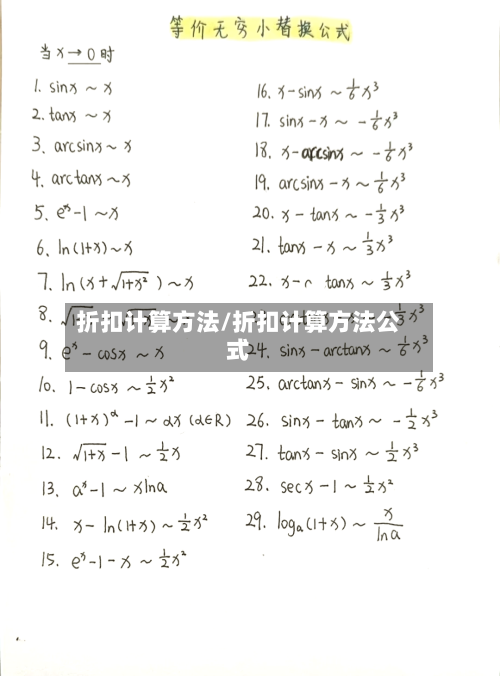 等价无穷小替换公式
当 x → 0 时
1. sinx ~ x
2. tanx ~ x
3. arcsinx ~ x
4. arctanx ~ x
5. eˣ-1 ~ x
6. ln(1+x) ~ x
7. ln(x+√(1+x²)) ~ x
8.
折扣计算方法/折扣计算方法公
式
9. eˣ - cosx ~ x
10. 1-cosx ~ ½x²
11. (1+x)ᵅ-1 ~ αx (α∈R)
12. √(1+x)-1 ~ ½x
13. aˣ-1 ~ xlna
14. x-ln(1+x) ~ ½x²
15. eˣ-1-x ~ ½x²
16. x-sinx ~ ⅙x³
17. sinx-x ~ -⅙x³
18. x-arcsinx ~ -⅙x³
19. arcsinx-x ~ ⅙x³
20. x-tanx ~ -⅓x³
21. tanx-x ~ ⅓x³
22. x- tanx ~ ⅓x³
⅓x³
24. sinx-arctanx ~ ⅙x³
25. arctanx-sinx ~ -⅙x³
26. sinx-tanx ~ -½x³
27. tanx-sinx ~ ½x³
28. secx-1 ~ ½x²
29. logₐ(1+x) ~ x/lna